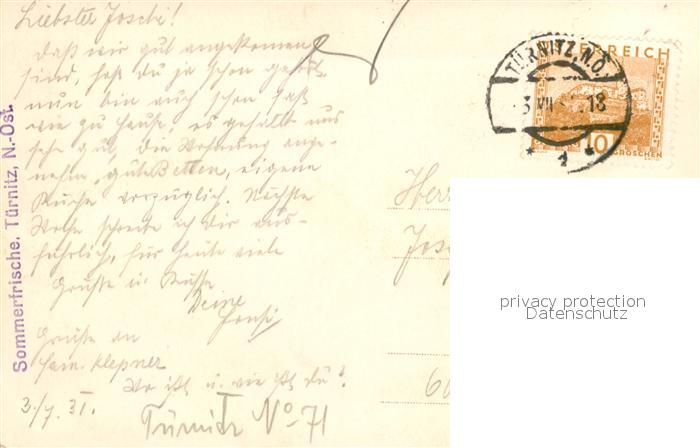 Liebster Joschi!
Daß wir gut angekommen
sind, hast du ja schon gehört.
nun bin auch schon fast
wie zu Hause, es gefällt uns
sehr gut, die Wohnung ange-
nehm, gute Betten, eigene
Küche vorzüglich. Nächste
Woche schreibe ich dir aus-
führlich, für heute viele
Grüße u. Küsse
Deine
Hansi
Grüße an
Fam. Klepner
Wo ist u. wie ist du?
3./7. 31.
Türnitz No 71
Sommerfrische, Türnitz, N.-Öst.
ÖSTERREICH
10 GROSCHEN
TÜRNITZ, N.Ö.
3 VII 18
* 1 *
Herr
Jos
60
privacy protection
Datenschutz